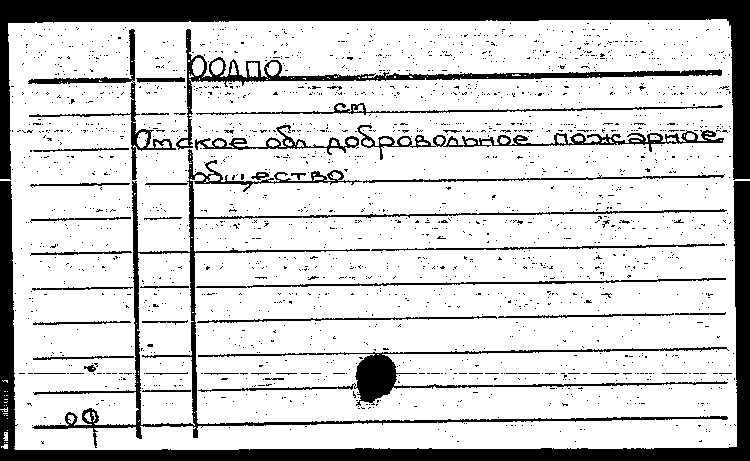 ООДПО
см
Омское обл. добровольное пожарное
общество
оф